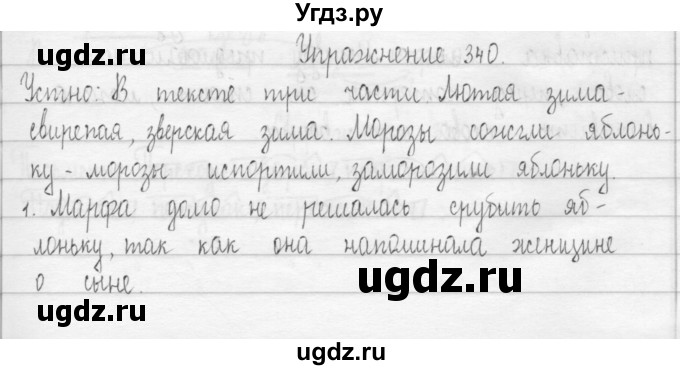 Угдз.ру
Упражнение 340.
ugdz.ru ugdz.ru
Устно: В тексте три части. Лютая зима -
свирепая, зверская зима. Морозы сожгли яблонь-
ку - морозы испортили, заморозили яблоньку.
ugdz.ru ugdz.ru
1. Марфа долго не решалась срубить яб-
лоньку, так как она напоминала женщине
о сыне.
ugdz.ru
ugdz.ru
ugdz.ru